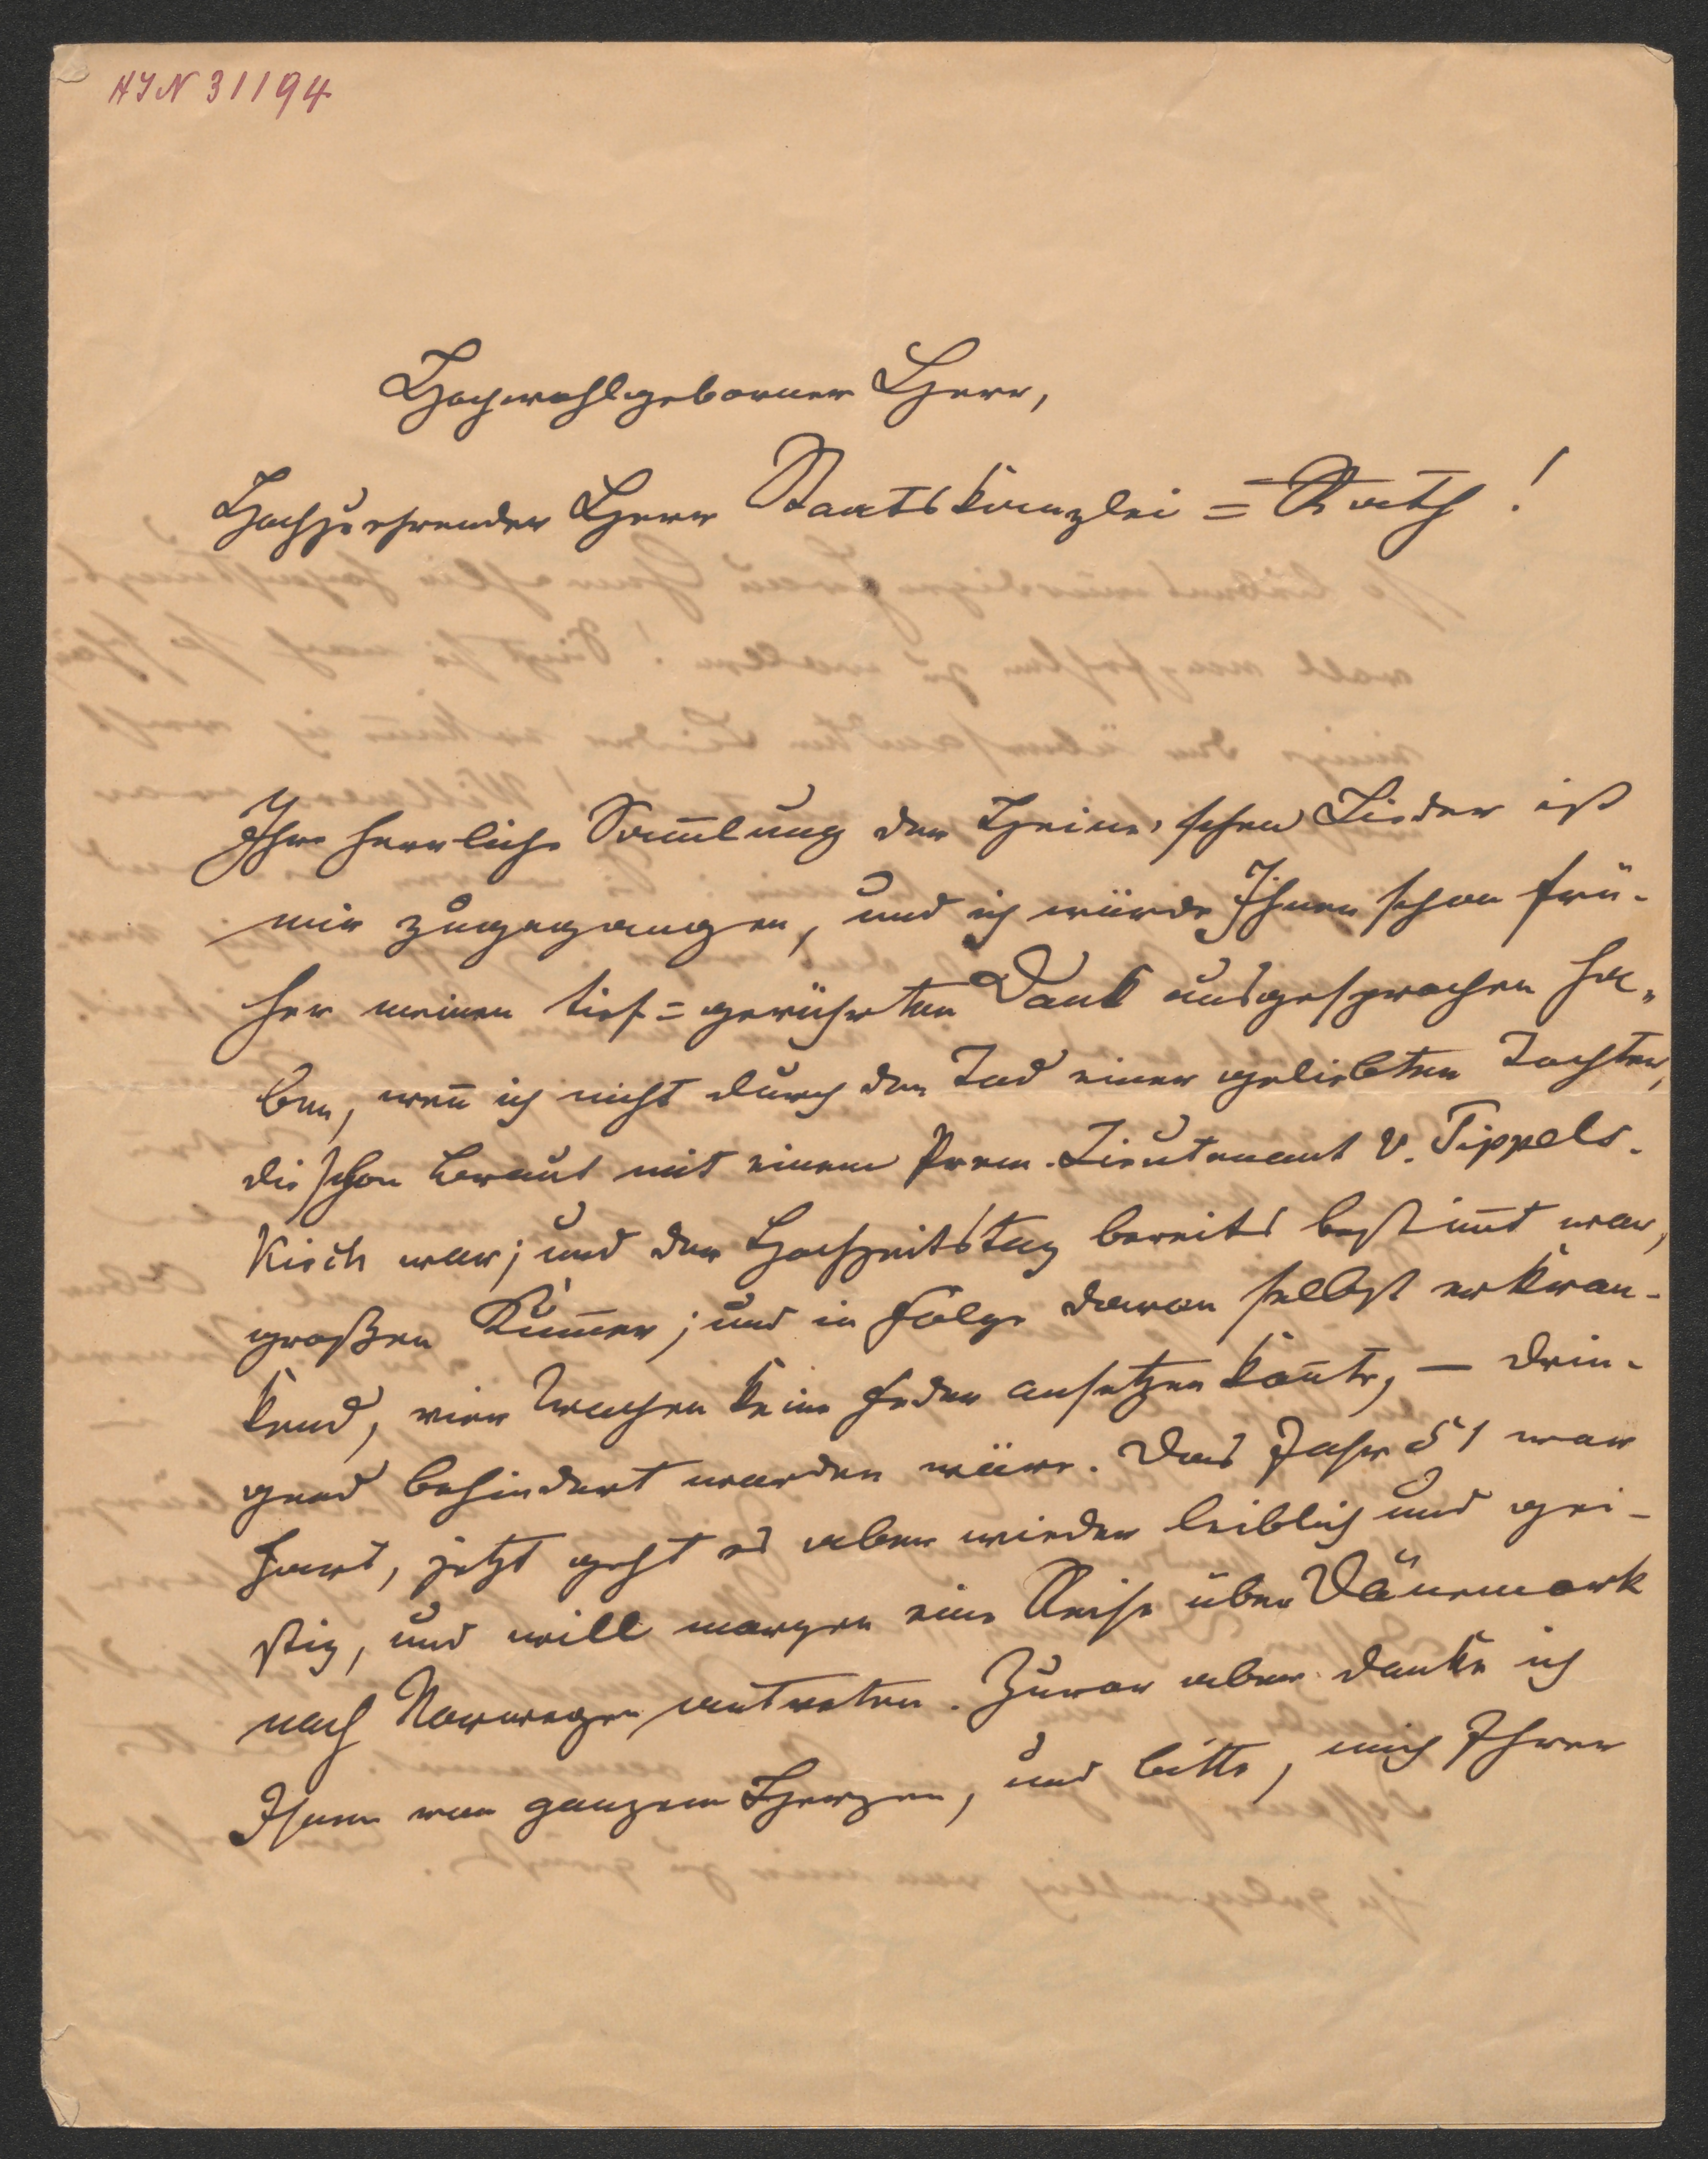 HIN 31194
Hochwohlgeborner Herr,
Hochzuehrender Herr Staatskanzlei=Rath!
Ihre herrliche Sam̅lung der Heine'schen Lieder ist
mir zugegangen, und ich würde Ihnen schon frü-
her meinen tief=gerührten Dank ausgesprochen ha-
ben, wen̅ ich nicht durch den Tod einer geliebten Tochter,
die schon Braut mit einem Prem. Lieutenant v. Tippels-
kirch war; und der Hochzeitstag bereits bestim̅t war,
großen Kum̅er; und in Folge davon selbst erkran-
kend, vier Wochen keine Feder ansetzen kon̅te, — drin-
gend behindert worden wäre. Das Jahr 51 war
hart, jetzt geht es aber wieder leiblich und gei-
stig, und will morgen eine Reise über Dänemark
nach Norwegen antreten. Zuvor aber danke ich
Ihnen von ganzem Herzen, und bitte, mich Ihrer